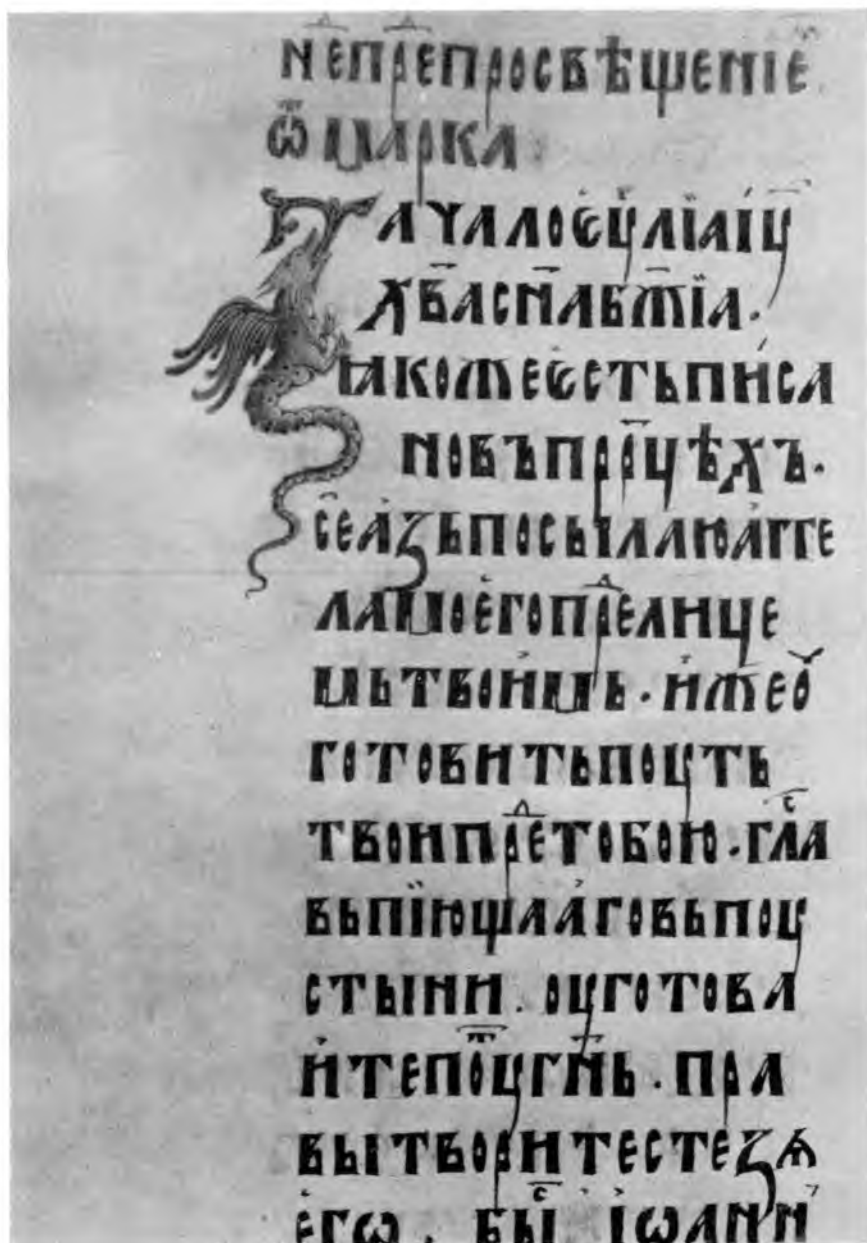 нⷣепрⷣепросвѣщенїе
ѿ марка
Зачало еѵ҃лїа іу҃
х҃ва сн҃а бж҃їа.
ꙗкоже есть писа
но въ прⷪ҇цѣхъ.
се азь посылаю агге
ла моего прⷣе лице
мь твоимь. иже оу
готовить поуть
твои прⷣе тобою. глⷭ҇а
вьпїющааго вь поу
стыни. оуготова
ите поⷮу гн҃ь. пра
вы творите стезѧ
его. быⷭ҇ іѡанн